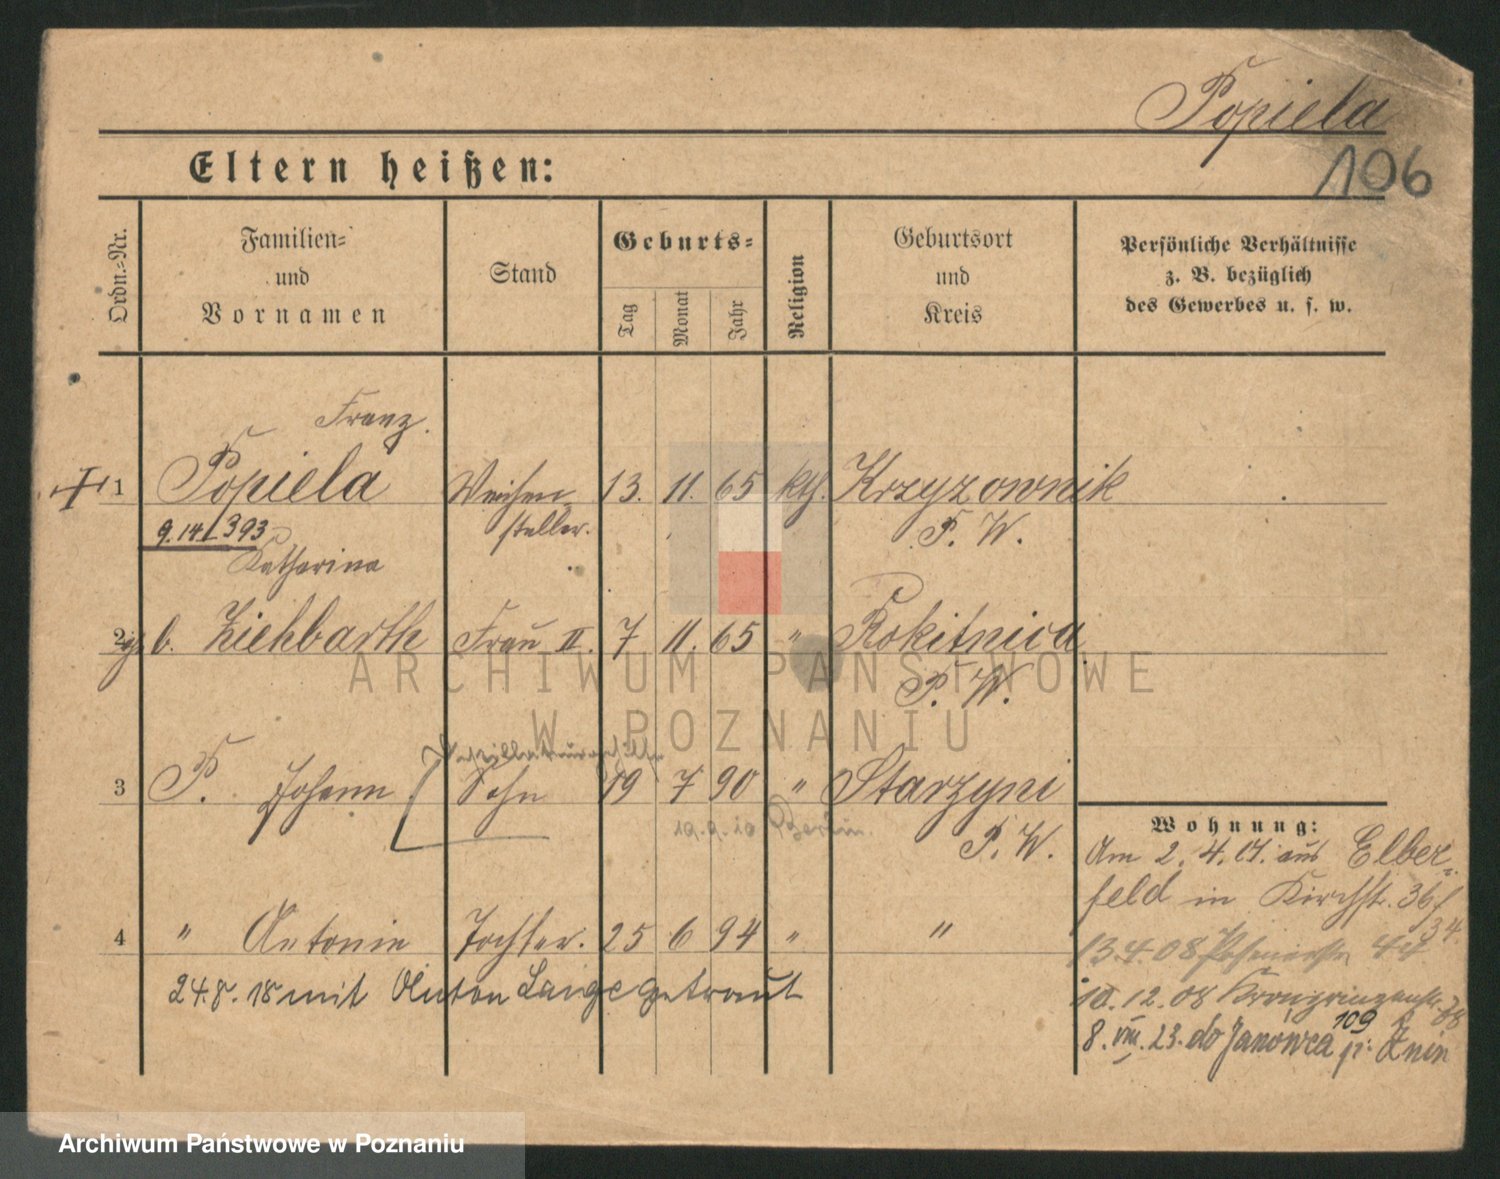 Popiela
106
Eltern heißen:
Ordn.-Nr.
Familien-
und
Vornamen
Stand
Geburts-
Tag
Monat
Jahr
Religion
Geburtsort
und
Kreis
Persönliche Verhältnisse
z. B. bezüglich
des Gewerbes u. s. w.
Franz.
1 Popiela Weichen- 13. 11. 65 kth. Krzyzownik
steller. P. W.
9.14/393
Katharina
2 b. Ziehbarth Frau II. 7 11. 65 " Rokitnica
P. W.
3 P. Johann Sohn 19 7 90 " Starzyni
19.9.10 Berlin.
P. W.
Wohnung:
Am 2. 4. 17. aus Elber-
feld in Kirchstr. 36/
34.
4 " Antonie Tochter. 25 6 94 " "
13.4.08 Posenerstr 44
24.8.18 mit Anton Lange getraut
10.12.08 Kronprinzenstr. 
109
8. VIII. 23. do Janówca p. Żnin
ARCHIWUM PAŃSTWOWE
W POZNANIU
Archiwum Państwowe w Poznaniu